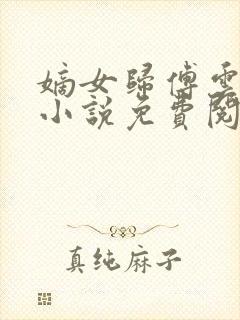 嫡女歸傅雲
小說免費閱
真纯麻子